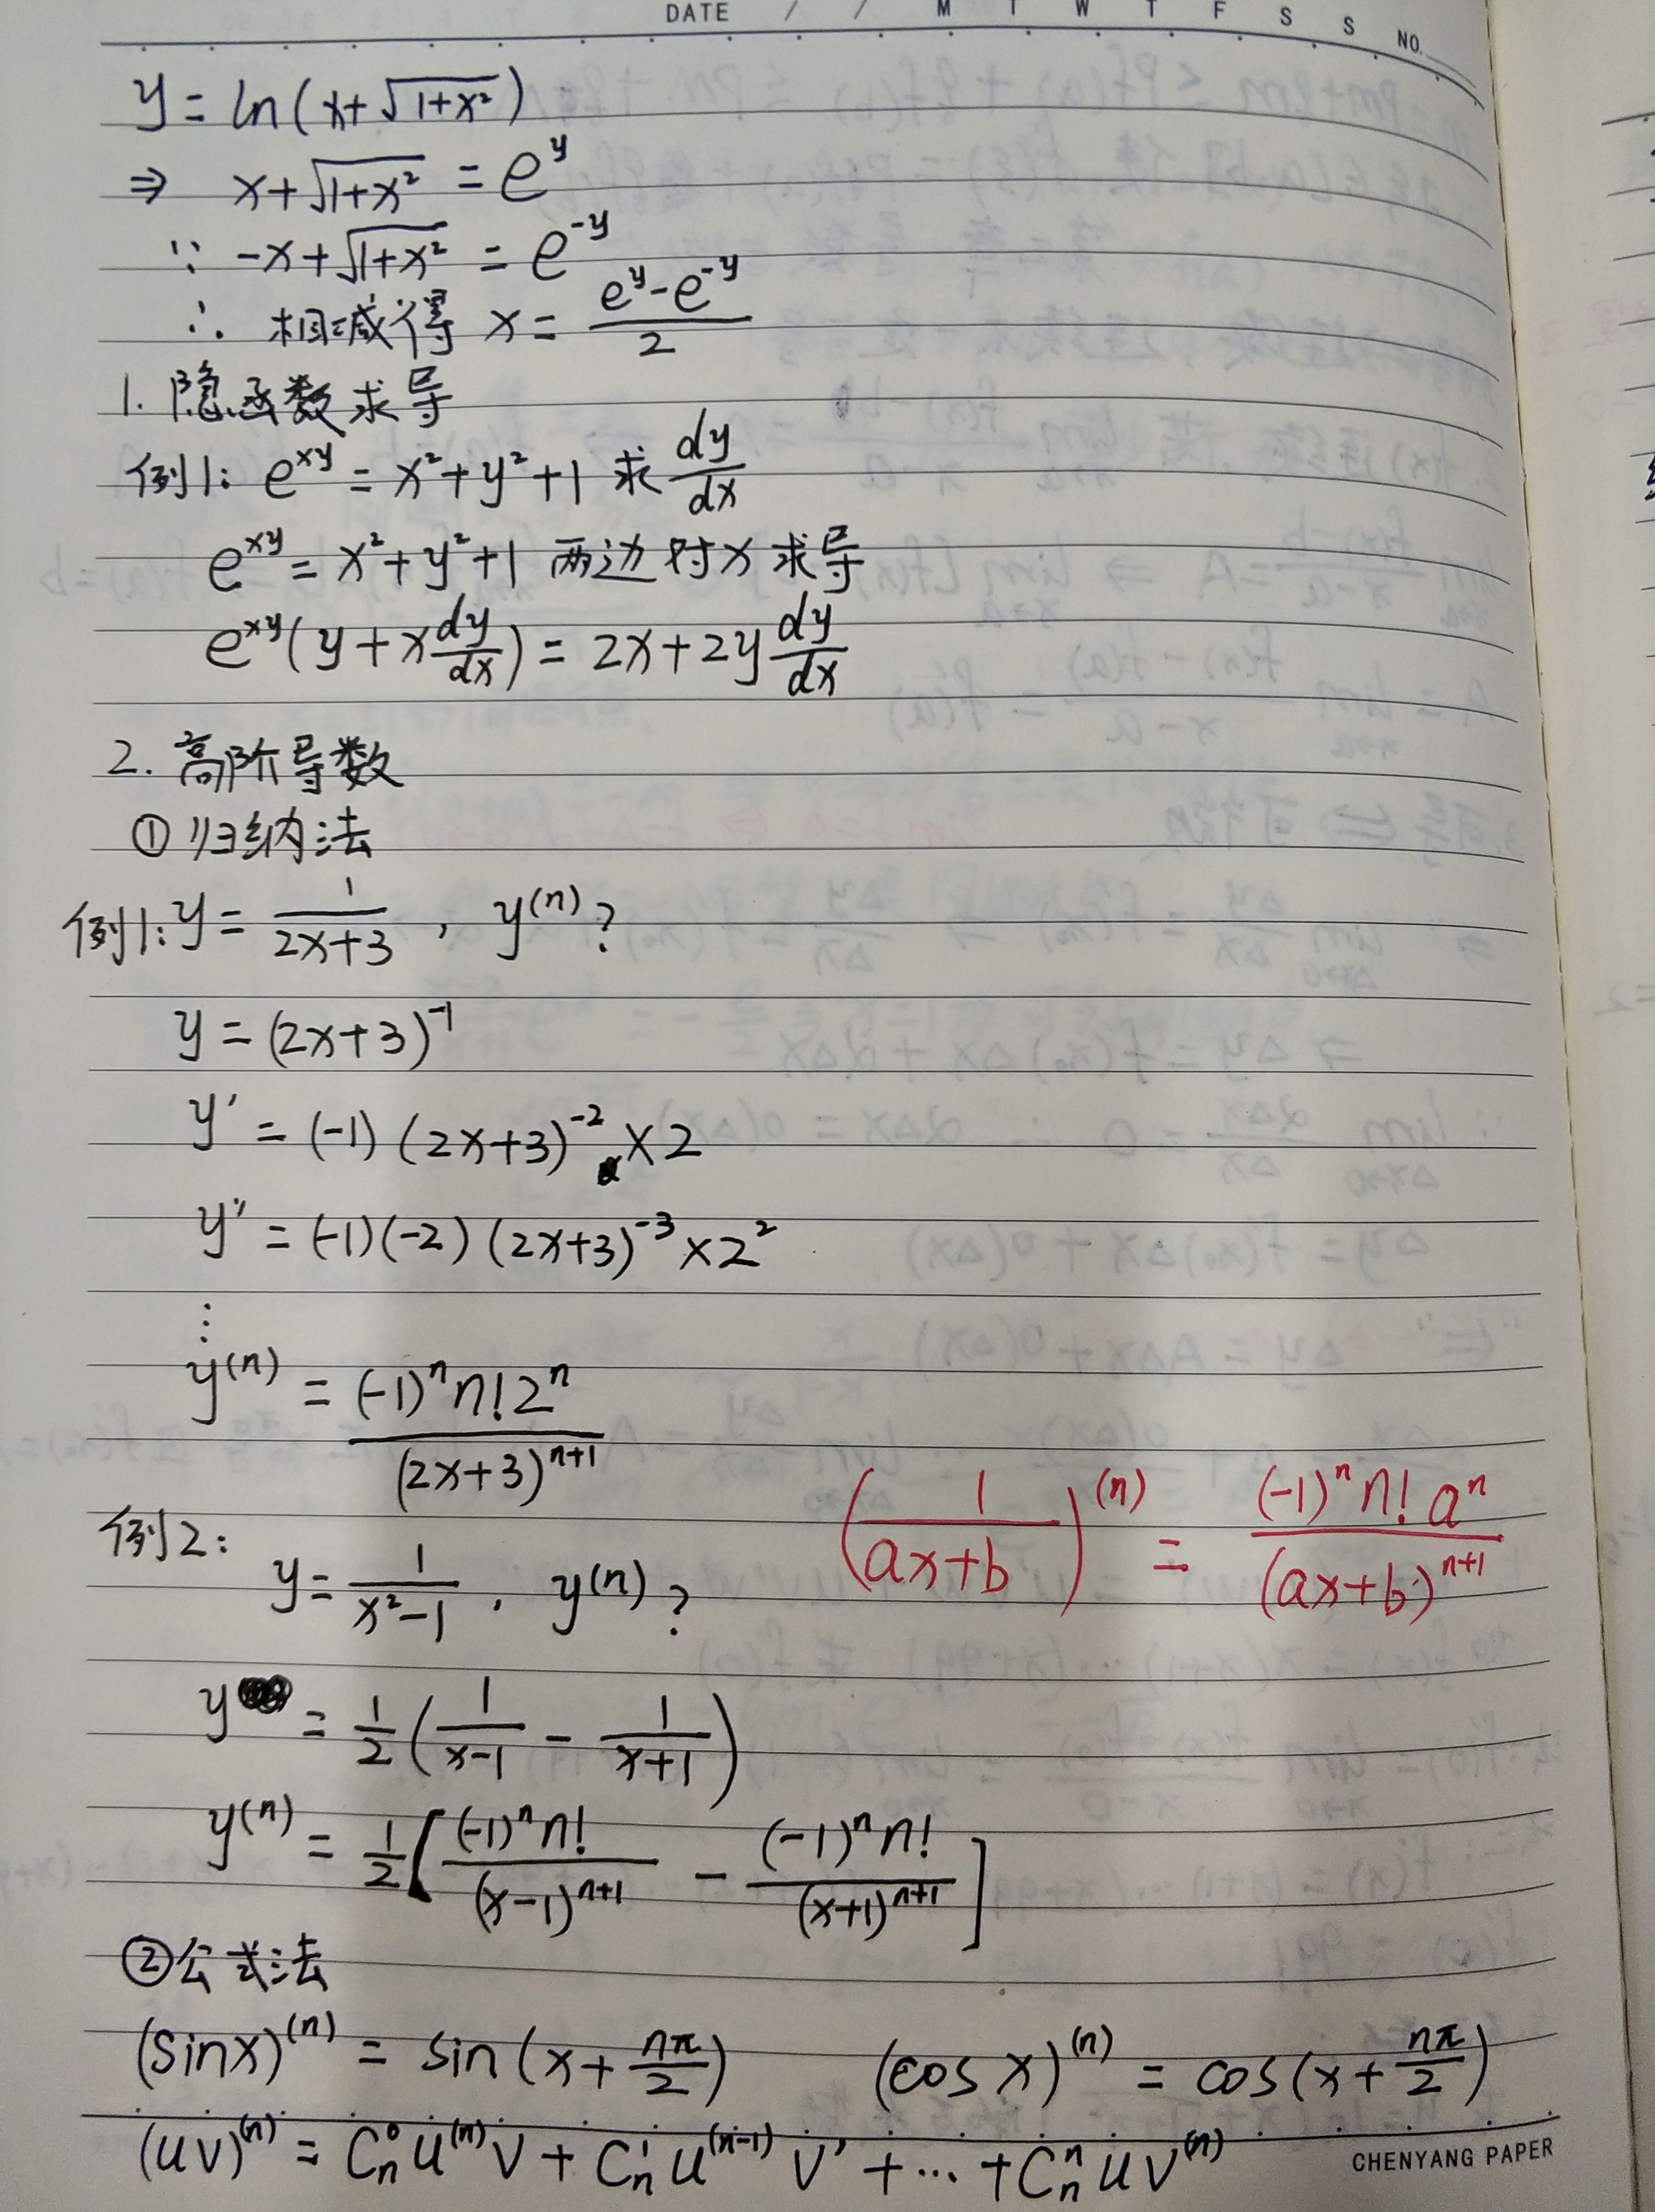 DATE / / M T W T F S S NO.
y = ln(x+√(1+x²))
⇒ x+√(1+x²) = e^y
∵ -x+√(1+x²) = e^(-y)
∴ 相减得 x = (e^y - e^(-y))/2
1. 隐函数求导
例1: e^(xy) = x²+y²+1 求 dy/dx
e^(xy) = x²+y²+1 两边对x求导
e^(xy)(y + x dy/dx) = 2x+2y dy/dx
2. 高阶导数
① 归纳法
例1: y = 1/(2x+3) , y^(n)?
y = (2x+3)^(-1)
y' = (-1)(2x+3)^(-2) ×2
y'' = (-1)(-2)(2x+3)^(-3) ×2²
⋮
y^(n) = (-1)^n n! 2^n / (2x+3)^(n+1)
(1/(ax+b))^(n) = (-1)^n n! a^n / (ax+b)^(n+1)
例2:
y = 1/(x²-1) , y^(n)?
y = 1/2 (1/(x-1) - 1/(x+1))
y^(n) = 1/2 [(-1)^n n!/(x-1)^(n+1) - (-1)^n n!/(x+1)^(n+1)]
② 公式法
(sinx)^(n) = sin(x + nπ/2) (cosx)^(n) = cos(x + nπ/2)
(uv)^(n) = C_n^0 u^(n) v + C_n^1 u^(n-1) v' + ⋯ + C_n^n u v^(n)
CHENYANG PAPER